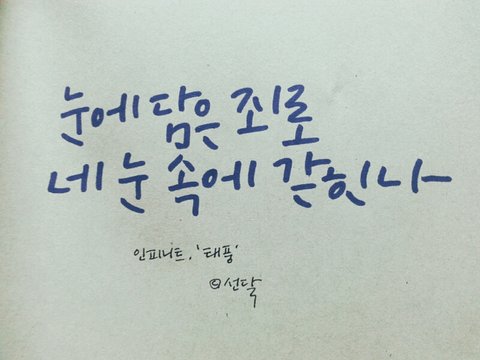 눈에 담은 죄로
네 눈 속에 갇힌 나
인피니트, '태풍'
@선달